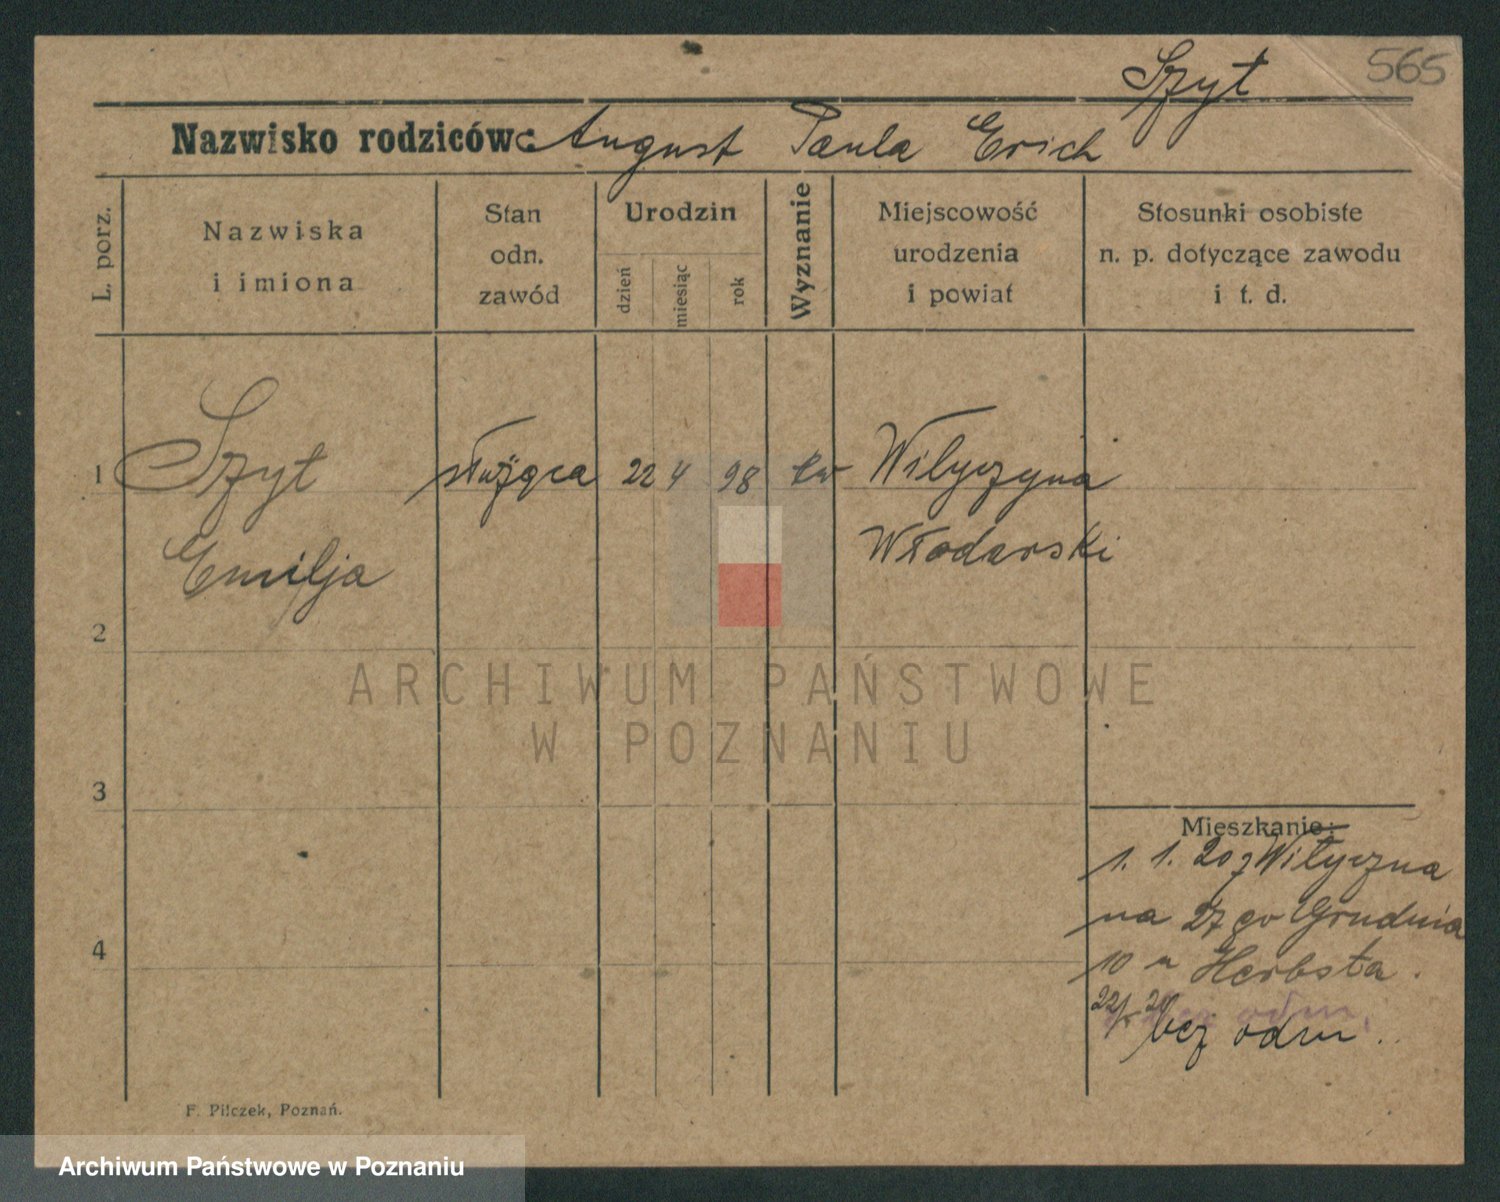 Szyt
565
Nazwisko rodziców: August Paula Erich
L. porz.
Nazwiska
i imiona
Stan
odn.
zawód
Urodzin
dzień
miesiąc
rok
Wyznanie
Miejscowość
urodzenia
i powiat
Stosunki osobiste
n. p. dotyczące zawodu
i t. d.
1 Szyt służąca 22 4 98 ew Wilyczyna
Emilja Włodarski
2
ARCHIWUM PAŃSTWOWE
W POZNANIU
3
Mieszkanie:
1. 1. 20 z Wilyczna
na 27 go Grudnia
10 u Herbsta.
bez odm.
4
F. Pilczek, Poznań.
Archiwum Państwowe w Poznaniu